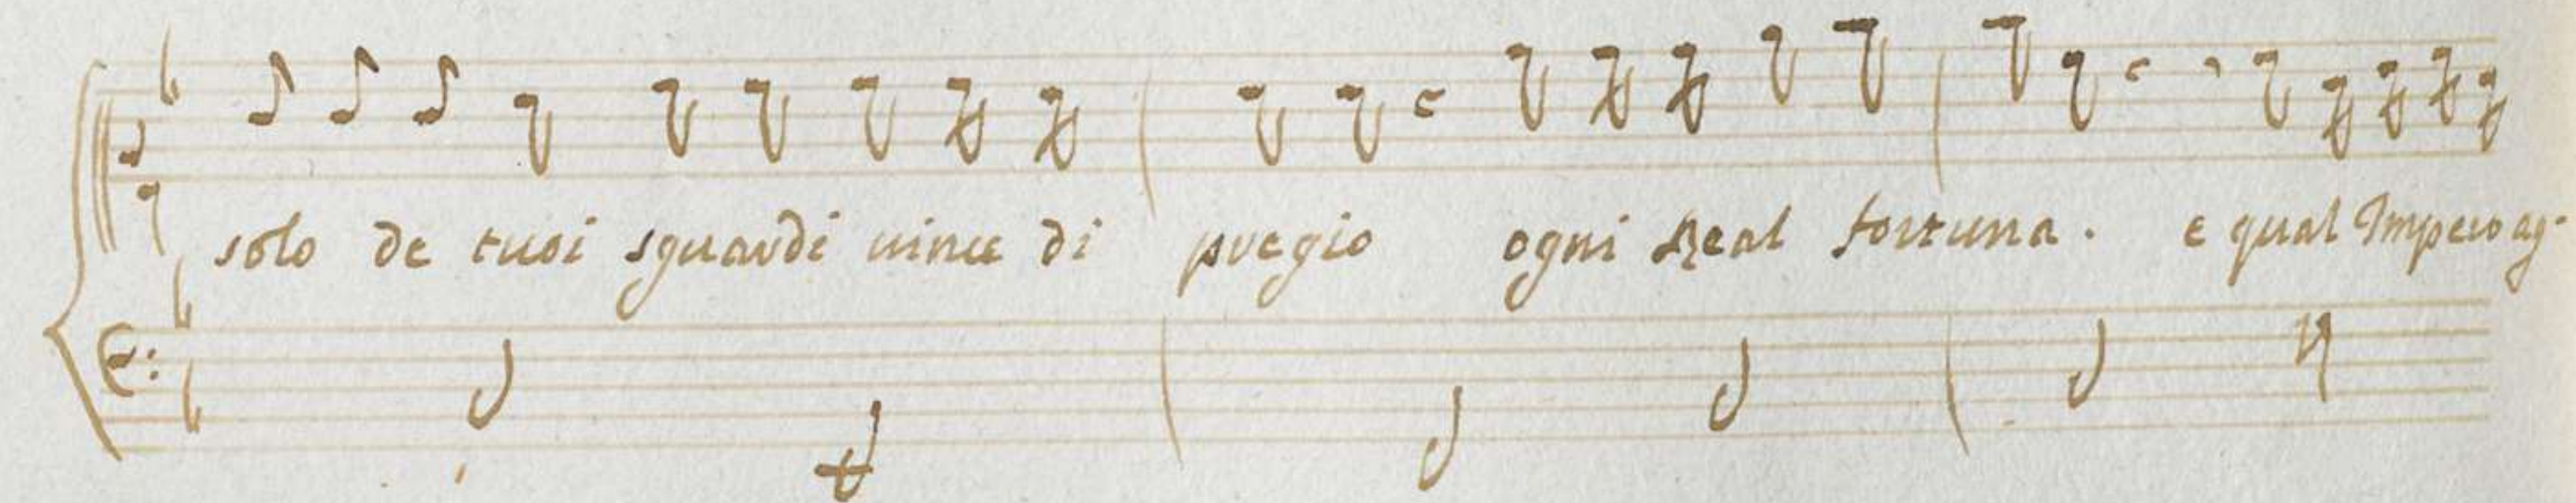 solo de tuoi sguardi uince di pregio ogni Real fortuna. e qual Impero ag-